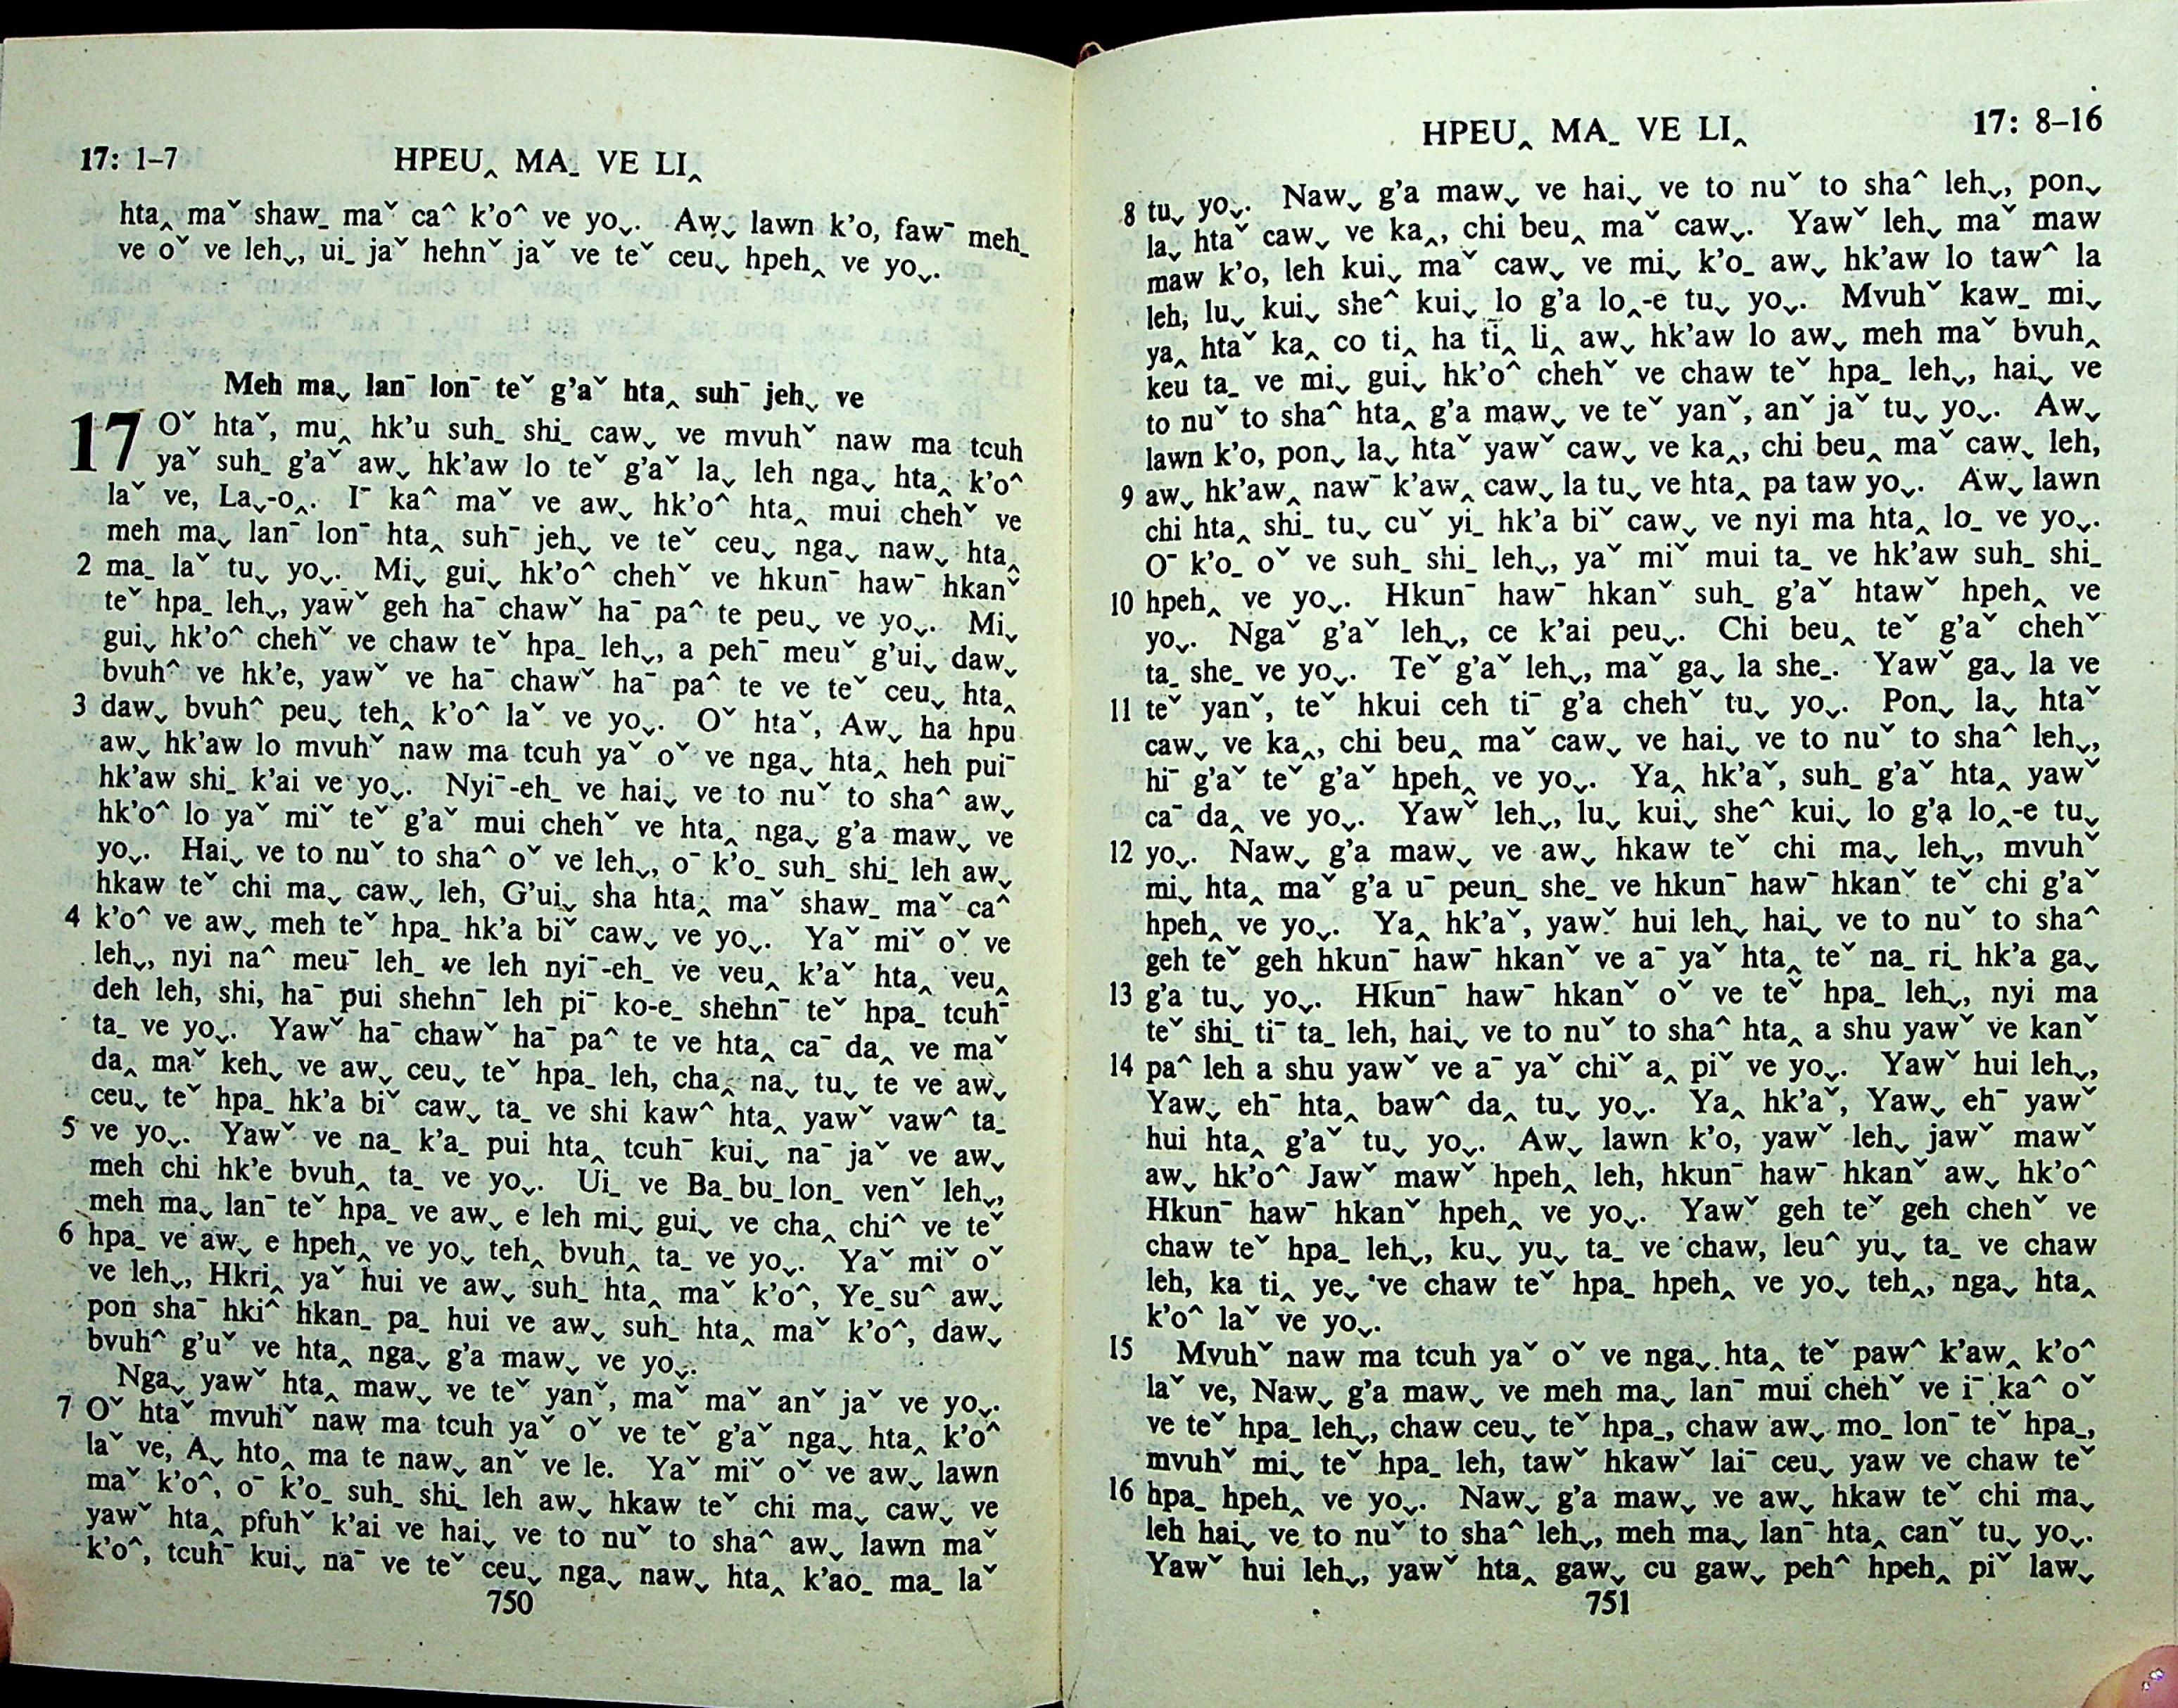 17: 1–7 HPEU‸ MA_ VE LI‸
hta‸ maˇ shaw_ maˇ ca^ k'o^ ve yo⌄. Aw⌄ lawn k'o, fawˉ meh_
ve oˇ ve leh⌄, ui_ jaˇ hehnˇ jaˇ ve teˇ ceu⌄ hpeh‸ ve yo⌄.
Meh ma⌄ lanˉ lonˉ teˇ g'aˇ hta‸ suhˉ jeh⌄ ve
17 Oˇ htaˇ, mu‸ hk'u suh_ shi_ caw⌄ ve mvuhˇ naw ma tcuh
yaˇ suh_ g'aˇ aw⌄ hk'aw lo teˇ g'aˇ la⌄ leh nga⌄ hta‸ k'o^
laˇ ve, La⌄-o‸. Iˉ ka^ maˇ ve aw⌄ hk'o^ hta‸ mui chehˇ ve
meh ma⌄ lanˉ lonˉ hta‸ suhˉ jeh⌄ ve teˇ ceu⌄ nga⌄ naw⌄ hta‸
2 ma_ laˇ tu⌄ yo⌄. Mi⌄ gui⌄ hk'o^ chehˇ ve hkunˉ hawˉ hkanˇ
teˇ hpa_ leh⌄, yawˇ geh haˉ chawˇ haˉ pa^ te peu⌄ ve yo⌄. Mi⌄
gui⌄ hk'o^ chehˇ ve chaw teˇ hpa_ leh⌄, a pehˉ meuˇ g'ui⌄ daw⌄
bvuh^ ve hk'e, yawˇ ve haˉ chawˇ haˉ pa^ te ve teˇ ceu⌄ hta‸
3 daw⌄ bvuh^ peu⌄ teh‸ k'o^ laˇ ve yo⌄. Oˇ htaˇ, Aw⌄ ha hpu
aw⌄ hk'aw lo mvuhˇ naw ma tcuh yaˇ oˇ ve nga⌄ hta‸ heh puiˉ
hk'aw shi_ k'ai ve yo⌄. Nyiˉ-eh_ ve hai⌄ ve to nuˇ to sha^ aw⌄
hk'o^ lo yaˇ miˇ teˇ g'aˇ mui chehˇ ve hta‸ nga⌄ g'a maw⌄ ve
yo⌄. Hai⌄ ve to nuˇ to sha^ oˇ ve leh⌄, oˉ k'o_ suh_ shi_ leh aw⌄
hkaw teˇ chi ma⌄ caw⌄ leh, G'ui⌄ sha hta‸ maˇ shaw_ maˇ ca^
4 k'o^ ve aw⌄ meh teˇ hpa_ hk'a biˇ caw⌄ ve yo⌄. Yaˇ miˇ oˇ ve
leh⌄, nyi na^ meuˉ leh_ ve leh nyiˉ-eh_ ve veu‸ k'aˇ hta‸ veu‸
deh leh, shi, haˉ pui shehnˉ leh piˉ ko-e_ shehnˉ teˇ hpa_ tcuhˉ
ta_ ve yo⌄. Yawˇ haˉ chawˇ haˉ pa^ te ve hta‸ caˉ da‸ ve maˇ
da‸ maˇ keh⌄ ve aw⌄ ceu⌄ teˇ hpa_ leh, cha‸ na⌄ tu⌄ te ve aw⌄
ceu⌄ teˇ hpa_ hk'a biˇ caw⌄ ta_ ve shi kaw^ hta‸ yawˇ vaw^ ta_
5 ve yo⌄. Yawˇ ve na_ k'a_ pui hta‸ tcuhˉ kui⌄ naˉ jaˇ ve aw⌄
meh chi hk'e bvuh‸ ta_ ve yo⌄. Ui_ ve Ba_bu_lon_ venˇ leh⌄,
meh ma⌄ lanˉ teˇ hpa_ ve aw⌄ e leh mi⌄ gui⌄ ve cha‸ chi^ ve teˇ
6 hpa_ ve aw⌄ e hpeh‸ ve yo⌄ teh‸ bvuh‸ ta_ ve yo⌄. Yaˇ miˇ oˇ
ve leh⌄, Hkri‸ yaˇ hui ve aw⌄ suh_ hta‸ maˇ k'o^, Ye_su^ aw⌄
pon shaˉ hki^ hkan_ pa_ hui ve aw⌄ suh_ hta‸ maˇ k'o^, daw⌄
bvuh^ g'uˇ ve hta‸ nga⌄ g'a maw⌄ ve yo⌄.
Nga⌄ yawˇ hta‸ maw⌄ ve teˇ yanˇ, maˇ maˇ anˇ jaˇ ve yo⌄.
7 Oˇ htaˇ mvuhˇ naw ma tcuh yaˇ oˇ ve teˇ g'aˇ nga⌄ hta‸ k'o^
laˇ ve, A⌄ hto‸ ma te naw⌄ anˇ ve le. Yaˇ miˇ oˇ ve aw⌄ lawn
maˇ k'o^, oˉ k'o_ suh_ shi_ leh aw⌄ hkaw teˇ chi ma⌄ caw⌄ ve
yawˇ hta‸ pfuhˇ k'ai ve hai⌄ ve to nuˇ to sha^ aw⌄ lawn maˇ
k'o^, tcuhˉ kui⌄ naˉ ve teˇ ceu⌄ nga⌄ naw⌄ hta‸ k'ao_ ma_ laˇ
750
HPEU‸ MA_ VE LI‸ 17: 8–16
8 tu⌄ yo⌄. Naw⌄ g'a maw⌄ ve hai⌄ ve to nuˇ to sha^ leh⌄, pon⌄
la⌄ htaˇ caw⌄ ve ka‸, chi beu‸ maˇ caw⌄. Yawˇ leh⌄ maˇ maw
maw k'o, leh kui⌄ maˇ caw⌄ ve mi⌄ k'o_ aw⌄ hk'aw lo taw^ la
leh, lu⌄ kui⌄ she^ kui⌄ lo g'a lo‸-e tu⌄ yo⌄. Mvuhˇ kaw_ mi⌄
ya‸ htaˇ ka‸ co ti‸ ha ti‸ li‸ aw⌄ hk'aw lo aw⌄ meh maˇ bvuh‸
keu ta_ ve mi⌄ gui⌄ hk'o^ chehˇ ve chaw teˇ hpa_ leh⌄, hai⌄ ve
to nuˇ to sha^ hta‸ g'a maw⌄ ve teˇ yanˇ, anˇ jaˇ tu⌄ yo⌄. Aw⌄
lawn k'o, pon⌄ la⌄ htaˇ yawˇ caw⌄ ve ka‸, chi beu‸ maˇ caw⌄ leh,
9 aw⌄ hk'aw‸ nawˉ k'aw‸ caw⌄ la tu⌄ ve hta‸ pa taw yo⌄. Aw⌄ lawn
chi hta‸ shi_ tu⌄ cuˇ yi_ hk'a biˇ caw⌄ ve nyi ma hta‸ lo_ ve yo⌄.
Oˉ k'o_ oˇ ve suh_ shi_ leh⌄, yaˇ miˇ mui ta_ ve hk'aw suh_ shi_
10 hpeh‸ ve yo⌄. Hkunˉ hawˉ hkanˇ suh_ g'aˇ htawˇ hpeh‸ ve
yo⌄. Ngaˇ g'aˇ leh⌄, ce k'ai peu⌄. Chi beu‸ teˇ g'aˇ chehˇ
ta_ she_ ve yo⌄. Teˇ g'aˇ leh⌄, maˇ ga⌄ la she_. Yawˇ ga⌄ la ve
11 teˇ yanˇ, teˇ hkui ceh tiˉ g'a chehˇ tu⌄ yo⌄. Pon⌄ la⌄ htaˇ
caw⌄ ve ka‸, chi beu‸ maˇ caw⌄ ve hai⌄ ve to nuˇ to sha^ leh⌄,
hiˉ g'aˇ teˇ g'aˇ hpeh‸ ve yo⌄. Ya‸ hk'aˇ, suh_ g'aˇ hta‸ yawˇ
caˉ da‸ ve yo⌄. Yawˇ leh⌄, lu⌄ kui⌄ she^ kui⌄ lo g'a lo‸-e tu⌄
12 yo⌄. Naw⌄ g'a maw⌄ ve aw⌄ hkaw teˇ chi ma⌄ leh⌄, mvuhˇ
mi⌄ hta‸ maˇ g'a uˉ peun_ she_ ve hkunˉ hawˉ hkanˇ teˇ chi g'aˇ
hpeh‸ ve yo⌄. Ya‸ hk'aˇ, yawˇ hui leh⌄ hai⌄ ve to nuˇ to sha^
geh teˇ geh hkunˉ hawˉ hkanˇ ve aˉ yaˇ hta‸ teˇ na_ ri_ hk'a ga⌄
13 g'a tu⌄ yo⌄. Hkunˉ hawˉ hkanˇ oˇ ve teˇ hpa_ leh⌄, nyi ma
teˇ shi_ tiˉ ta_ leh, hai⌄ ve to nuˇ to sha^ hta‸ a shu yawˇ ve kanˇ
14 pa^ leh a shu yawˇ ve aˉ yaˇ chiˇ a‸ piˇ ve yo⌄. Yawˇ hui leh⌄,
Yaw⌄ ehˉ hta‸ baw^ da‸ tu⌄ yo⌄. Ya‸ hk'aˇ, Yaw⌄ ehˉ yawˇ
hui hta‸ g'aˇ tu⌄ yo⌄. Aw⌄ lawn k'o, yawˇ leh⌄ jawˇ mawˇ
aw⌄ hk'o^ Jawˇ mawˇ hpeh‸ leh, hkunˉ hawˉ hkanˇ aw⌄ hk'o^
Hkunˉ hawˉ hkanˇ hpeh‸ ve yo⌄. Yawˇ geh teˇ geh chehˇ ve
chaw teˇ hpa_ leh⌄, ku⌄ yu⌄ ta_ ve chaw, leu^ yu⌄ ta_ ve chaw
leh, ka ti‸ ye⌄ ve chaw teˇ hpa_ hpeh‸ ve yo⌄ teh‸, nga⌄ hta‸
k'o^ laˇ ve yo⌄.
15 Mvuhˇ naw ma tcuh yaˇ oˇ ve nga⌄ hta‸ teˇ paw^ k'aw‸ k'o^
laˇ ve, Naw⌄ g'a maw⌄ ve meh ma⌄ lanˉ mui chehˇ ve iˉ ka^ oˇ
ve teˇ hpa_ leh⌄, chaw ceu⌄ teˇ hpa_, chaw aw⌄ mo_ lonˉ teˇ hpa_,
mvuhˇ mi⌄ teˇ hpa_ leh, tawˇ hkawˇ laiˉ ceu⌄ yaw ve chaw teˇ
16 hpa_ hpeh‸ ve yo⌄. Naw⌄ g'a maw⌄ ve aw⌄ hkaw teˇ chi ma⌄
leh hai⌄ ve to nuˇ to sha^ leh⌄, meh ma⌄ lanˉ hta‸ canˇ tu⌄ yo⌄.
Yawˇ hui leh⌄, yawˇ hta‸ gaw⌄ cu gaw⌄ peh^ hpeh‸ piˇ law⌄
751